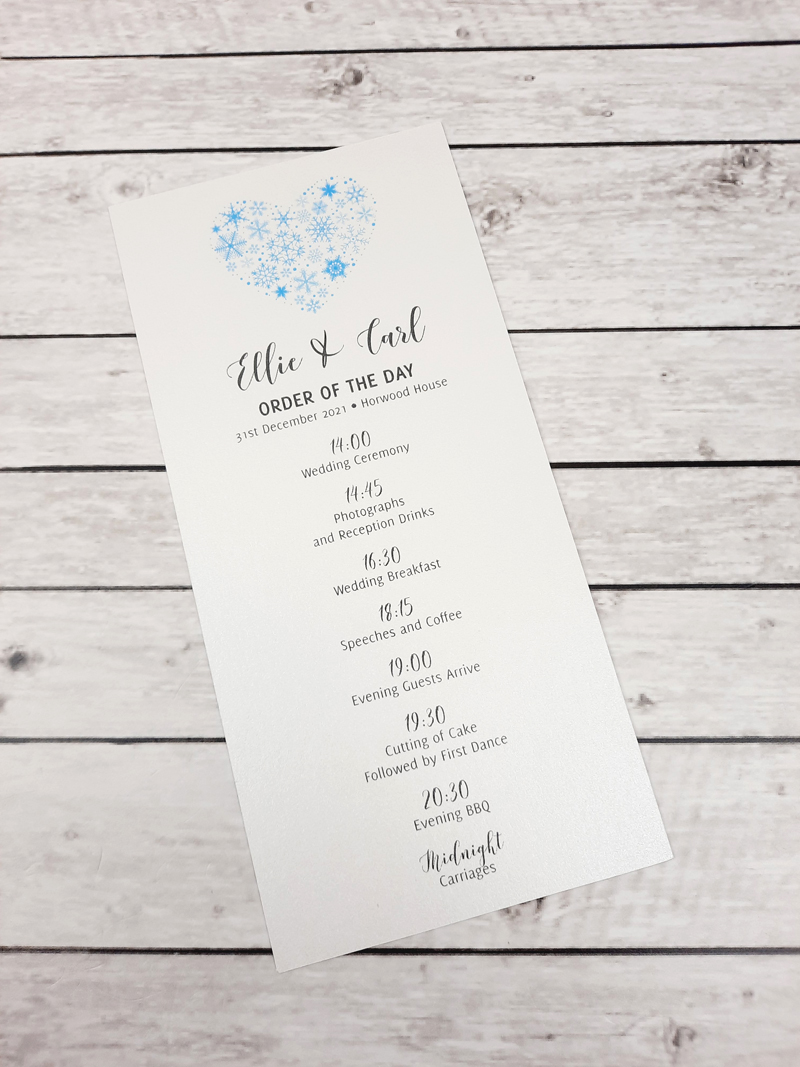 Ellie & Carl
ORDER OF THE DAY
31st December 2021 • Horwood House
14:00
Wedding Ceremony
14:45
Photographs
and Reception Drinks
16:30
Wedding Breakfast
18:15
Speeches and Coffee
19:00
Evening Guests Arrive
19:30
Cutting of Cake
Followed by First Dance
20:30
Evening BBQ
Midnight
Carriages